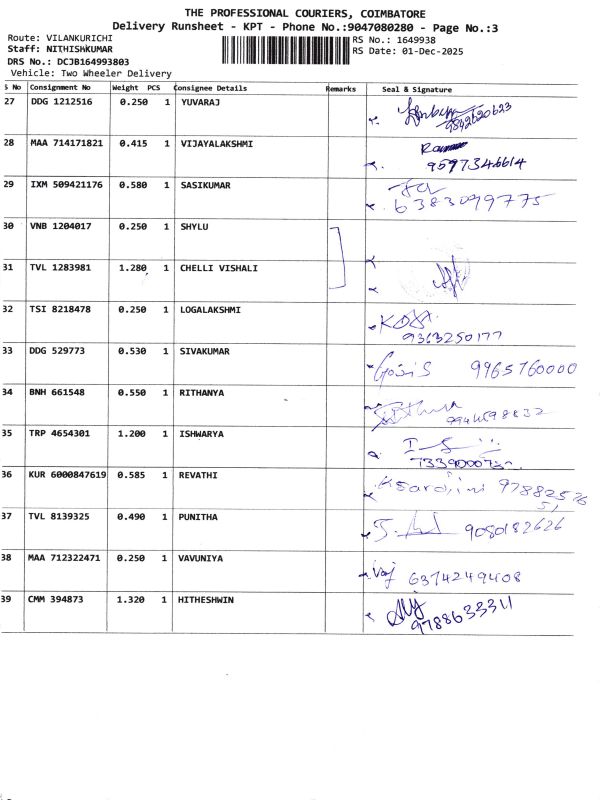 THE PROFESSIONAL COURIERS, COIMBATORE
Delivery Runsheet - KPT - Phone No.:9047080280 - Page No.:3
Route: VILANKURICHI
RS No.: 1649938
Staff: NITHISHKUMAR
RS Date: 01-Dec-2025
DRS No.: DCJB164993803
Vehicle: Two Wheeler Delivery
S No Consignment No Weight PCS Consignee Details Remarks Seal & Signature
27 DDG 1212516 0.250 1 YUVARAJ
9842620623
28 MAA 714171821 0.415 1 VIJAYALAKSHMI
9597346614
29 IXM 509421176 0.580 1 SASIKUMAR
6383099775
30 VNB 1204017 0.250 1 SHYLU
31 TVL 1283981 1.280 1 CHELLI VISHALI
32 TSI 8218478 0.250 1 LOGALAKSHMI
9363250177
33 DDG 529773 0.530 1 SIVAKUMAR
9965760000
34 BNH 661548 0.550 1 RITHANYA
35 TRP 4654301 1.200 1 ISHWARYA
36 KUR 6000847619 0.585 1 REVATHI
37 TVL 8139325 0.490 1 PUNITHA
9080182626
38 MAA 712322471 0.250 1 VAVUNIYA
6374249408
39 CMM 394873 1.320 1 HITHESHWIN
9788633311